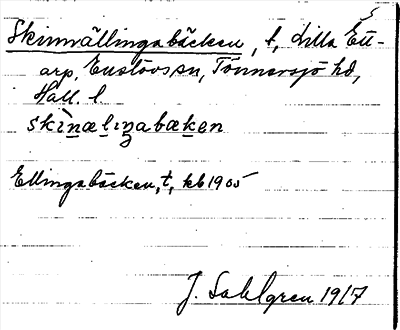 Skinnvällingabäcken, t, Lilla Ett-
arp, Enslövs sn, Tönnersjö hd,
Hall. l.
skìnælıŋabæken
Ellingabäcken, t, kb 1905
J. Sahlgren 1917